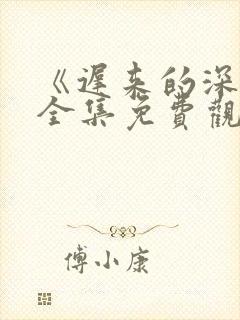 《遲来的深
全集免費觀
傅小康